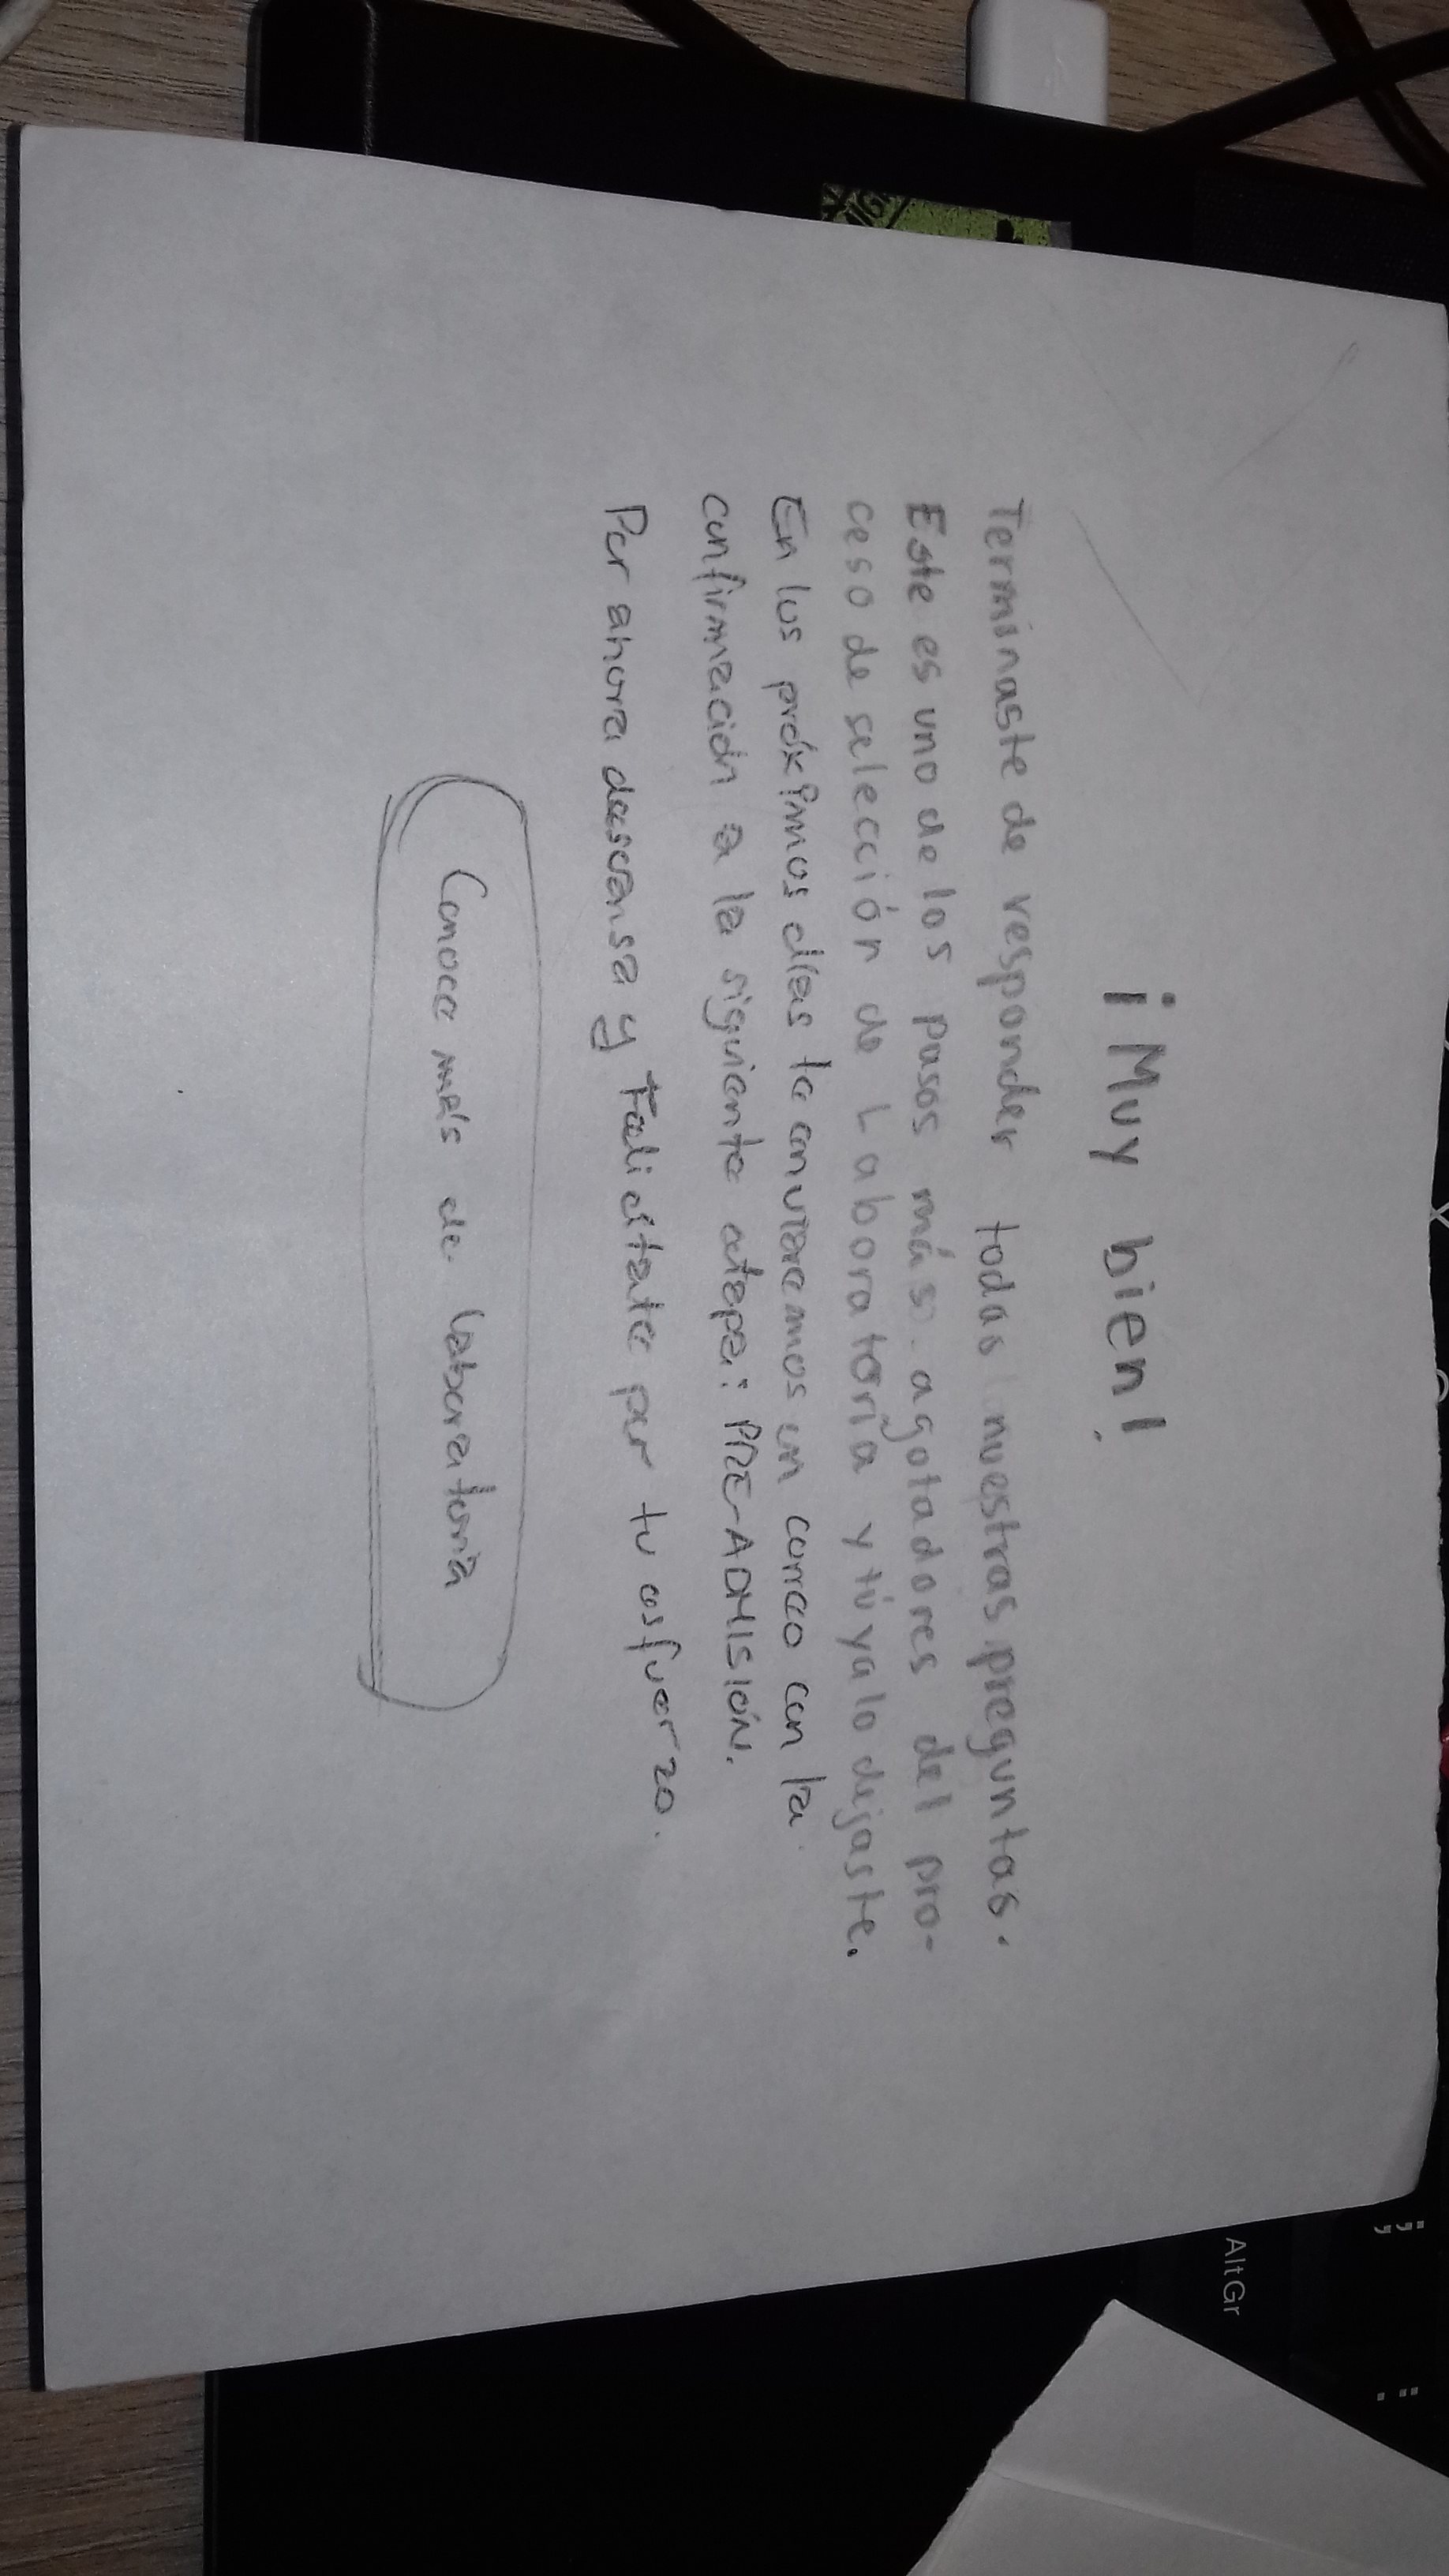 ¡Muy bien!
Terminaste de responder todas nuestras preguntas.
Este es uno de los pasos más agotadores del pro-
ceso de selección de Laboratoria y tú ya lo dejaste.
En los próximos días te enviaremos un correo con la
confirmación a la siguiente etapa: PRE-ADMISIÓN.
Por ahora descansa y Felicitate por tu esfuerzo.
Conoce más de Laboratoria
AltGr